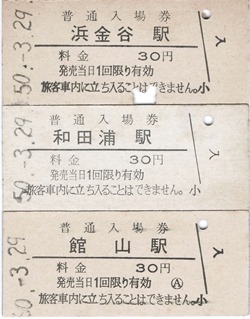 普通入場券
浜金谷駅
料金 30円
発売当日1回限り有効
旅客車内に立ち入ることはできません。小
入
50.-3.29
普通入場券
和田浦駅
料金 30円
発売当日1回限り有効
旅客車内に立ち入ることはできません。小
入
50.-3.29
普通入場券
館山駅
料金 30円
発売当日1回限り有効 Ⓐ
旅客車内に立ち入ることはできません。小
入
50.-3.29